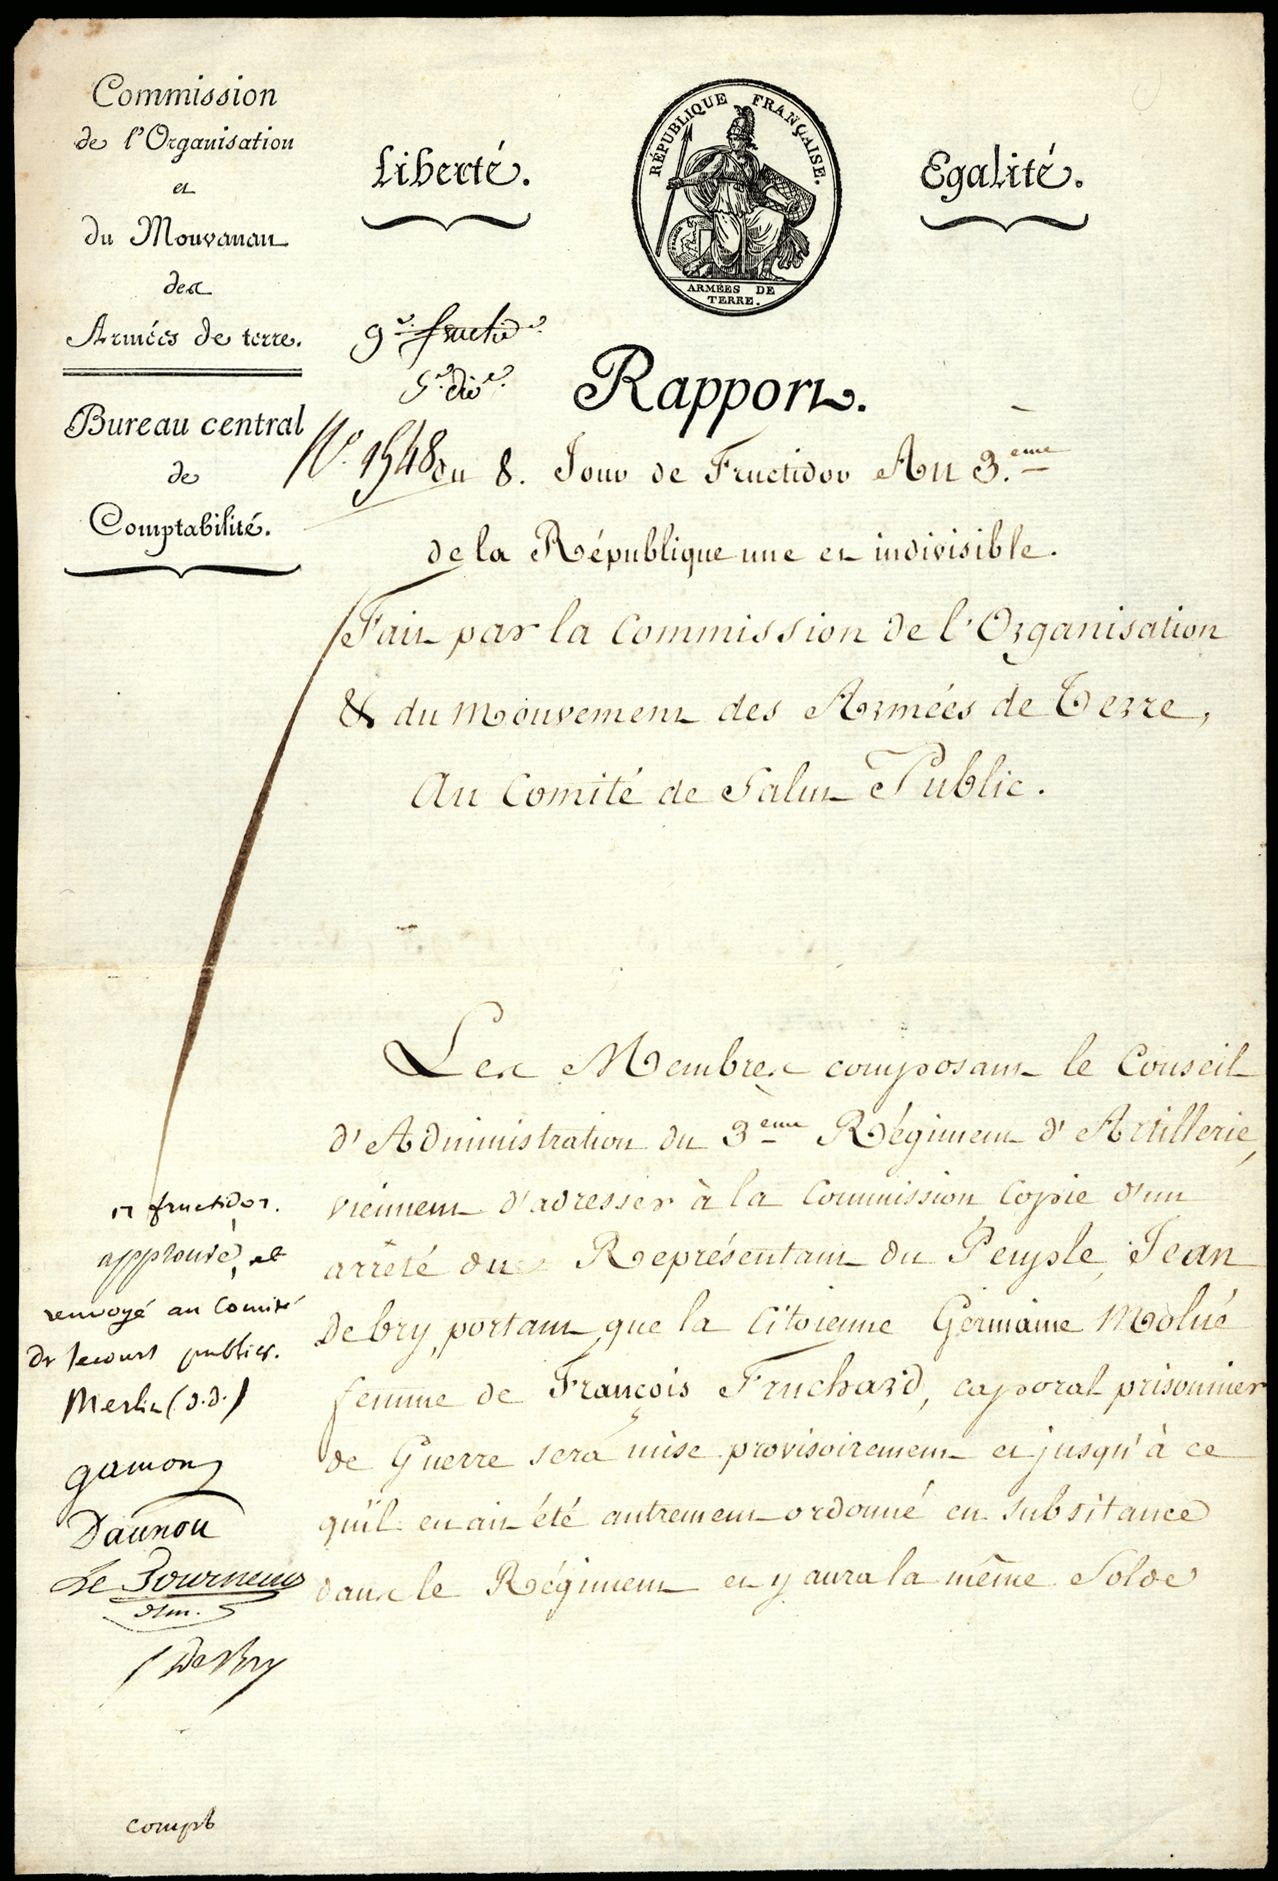 Commission
de l'Organisation
et
du Mouvement
des
Armées de terre.
Bureau central
de
Comptabilité.
Liberté.
RÉPUBLIQUE FRANÇAISE.
ARMÉES DE
TERRE.
Egalité.
9.e fructid.or
5.e div.on
N.o 1548
Rapport.
du 8. Jour de Fructidor An 3.eme
de la République une et indivisible.
Fait par la Commission de l'Organisation
& du Mouvement des Armées de Terre,
Au Comité de Salut Public.
Les Membres composant le Conseil
d'Administration du 3eme Régiment d'Artillerie,
viennent d'adresser à la Commission Copie d'un
arrêté du Représentant du Peuple, Jean
Debry, portant que la Citoienne Germaine Molué
femme de François Fruchard, caporal prisonnier
de Guerre sera mise provisoirement et jusqu'à ce
qu'il en ait été autrement ordonné en subsitance
dans le Régiment et y aura la même Solde
17 fructidor.
approuvé, et
renvoyé au Comité
de secours publics.
Merlin (d.d.)
gamon
Daunou
Le Tourneur
J DeBry
compt